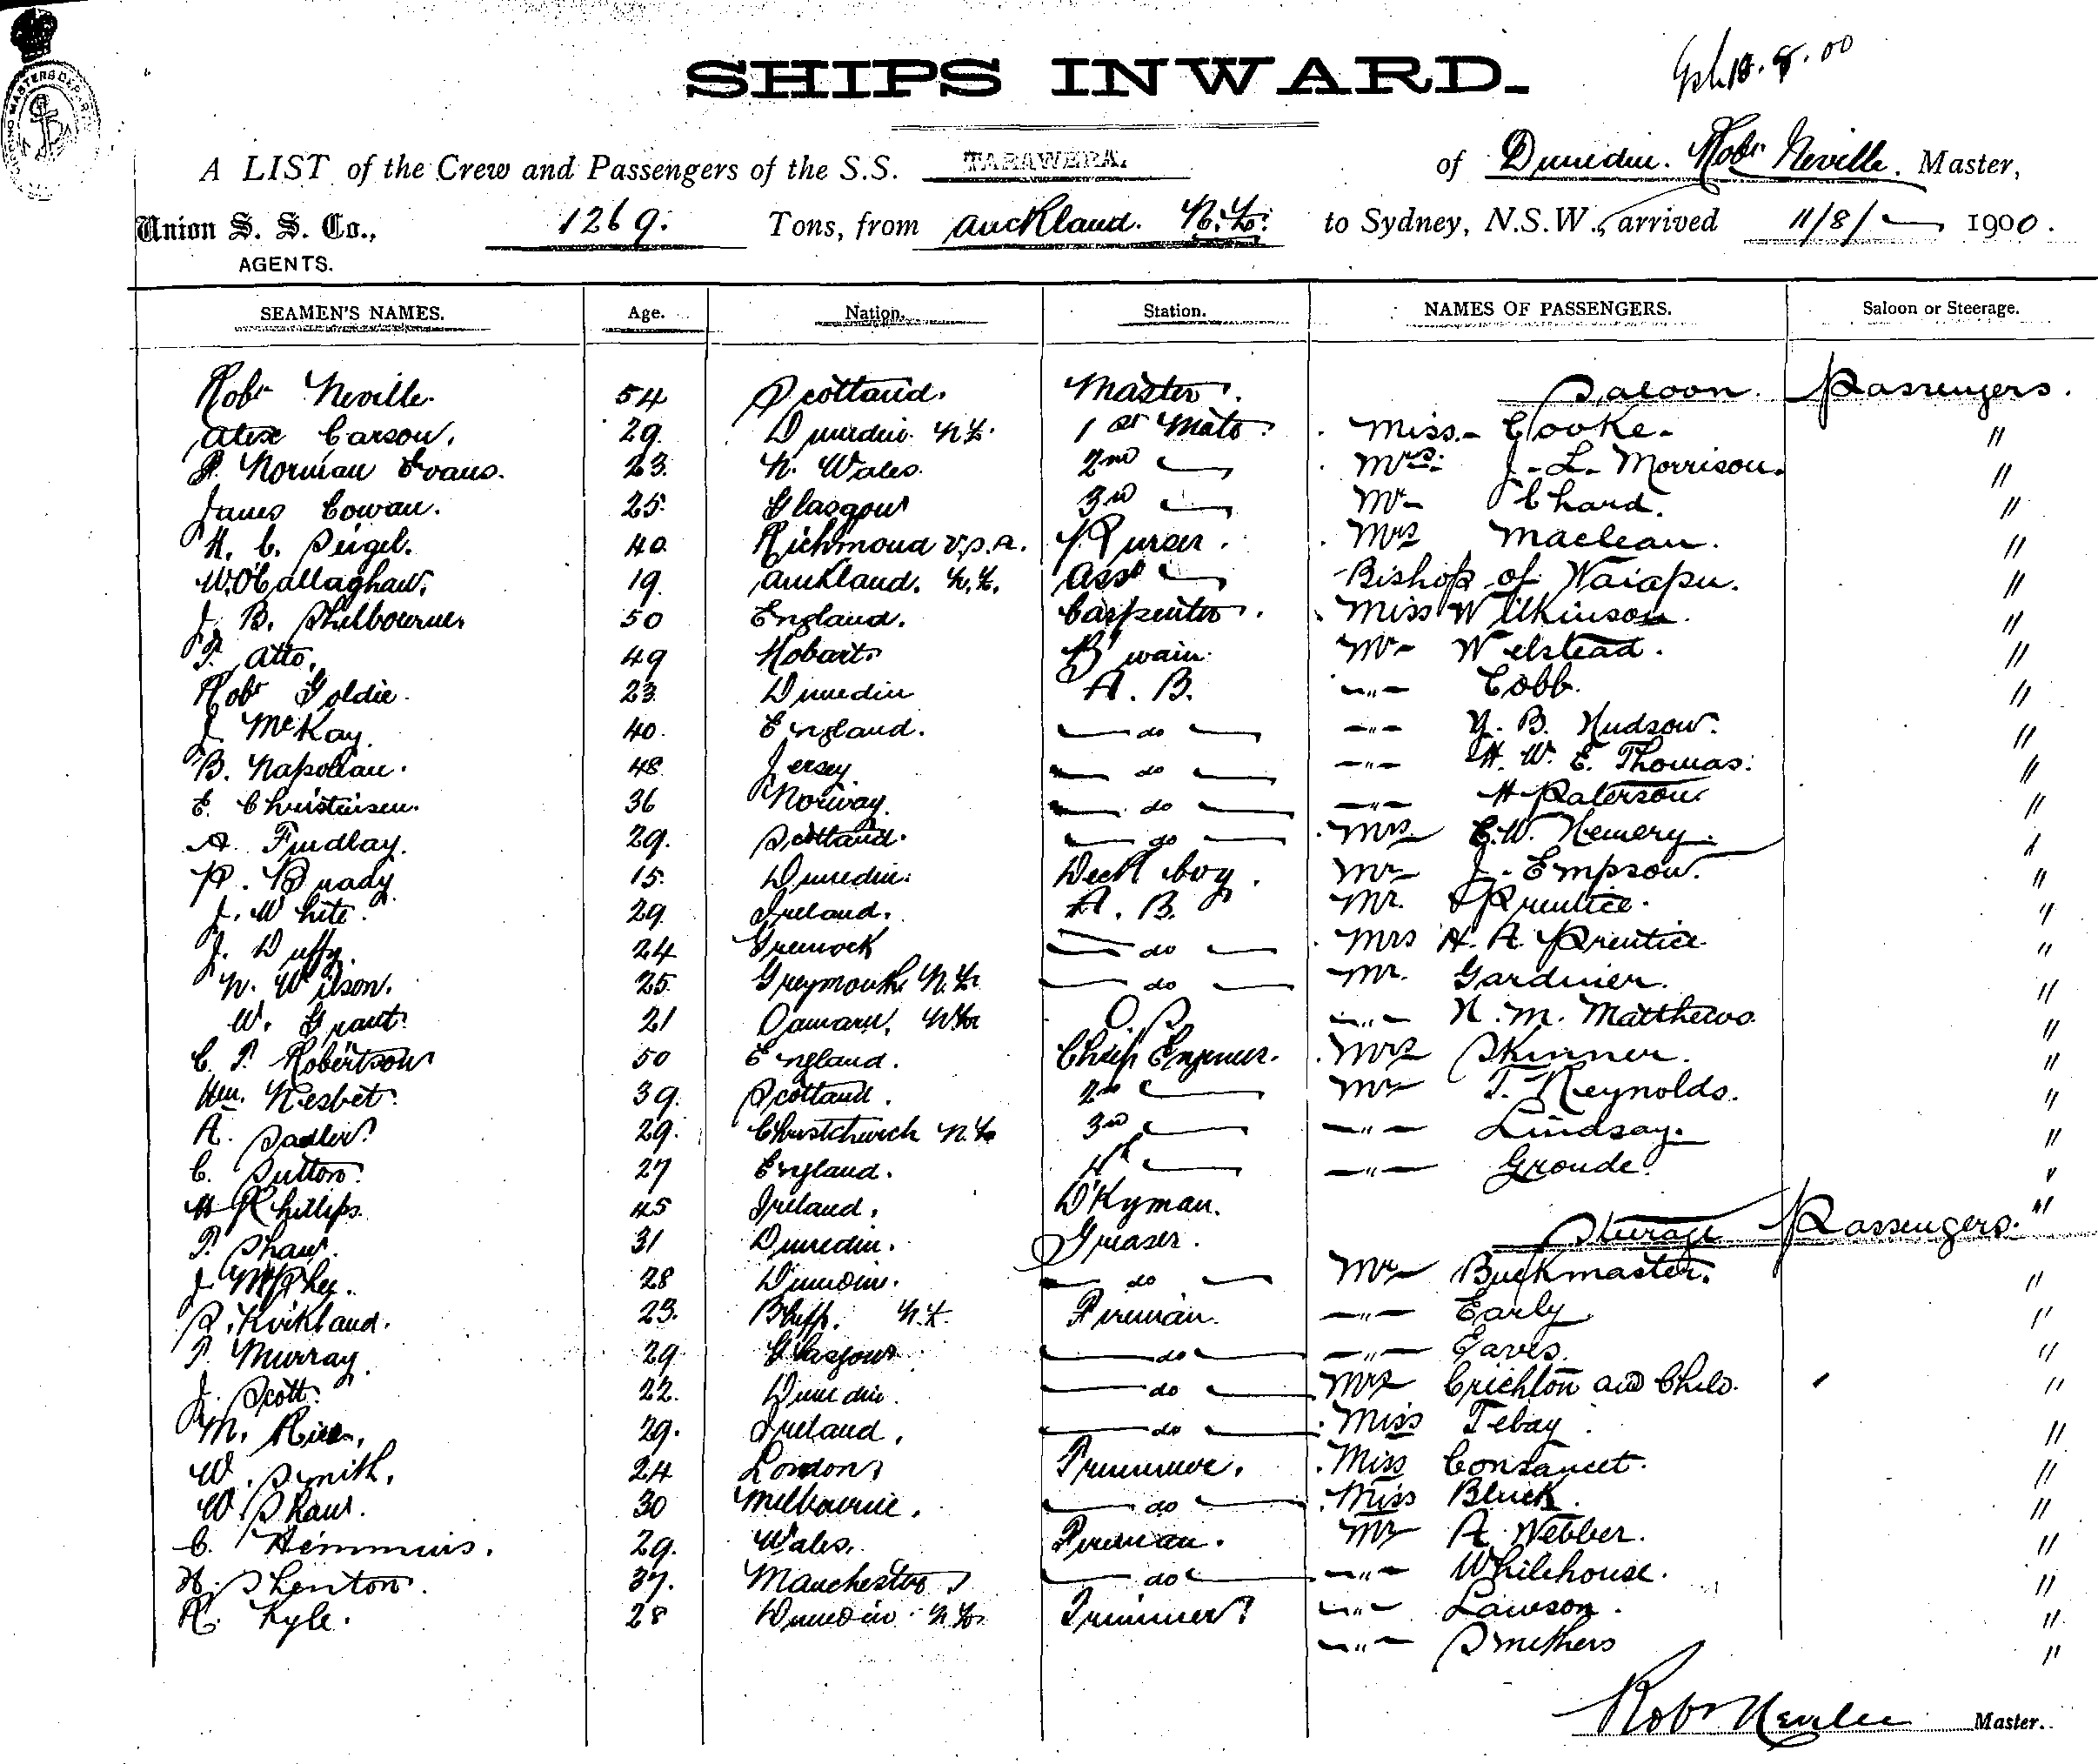 SHIPS INWARD.
A LIST of the Crew and Passengers of the S.S. TARAWERA. of Dunedin. Robt Neville. Master,
Union S. S. Co., 1269. Tons, from Auckland. N.Z. to Sydney, N.S.W., arrived 11/8/ 1900.
AGENTS.
SEAMEN'S NAMES. Age. Nation. Station. NAMES OF PASSENGERS. Saloon or Steerage.
Robt Neville. 54 Scotland. Master. Saloon Passengers.
Alex Carson. 29. Dunedin N.Z. 1st Mate. Miss Cooke. "
Norman Evans. 23. N. Wales. 2nd Mrs. J. L. Morrison. "
James Cowan. 25. Glasgow 3rd Mr Chard. "
H. C. Seigel. 40. Richmond U.S.A. Purser. Mrs Maclean. "
W. O'Callaghan. 19. Auckland. N.Z. Asst Bishop of Waiapu. "
J. B. Shelbourne. 50 England. Carpenter. Miss Wilkinson. "
T. Atto. 49 Hobart. B'wain. Mr Welstead. "
Robt Goldie. 23. Dunedin A. B. " Cobb. "
J. McKay. 40. England. do " Y. B. Hudson. "
B. Napolian. 48. Jersey. do " H. W. E. Thomas. "
E. Christensen. 36 Norway. do " H Paterson. "
A. Findlay. 29. Scotland. do Mrs E.W. Nemery. "
R. Brady 15. Dunedin. Deck boy. Mr J. Empson. "
J. White. 29. Ireland. A. B. Mr. Prentice. "
J. Duffy. 24 Greenock do Mrs H. A. Prentice. "
N. Wilson. 25. Greymouth N.Z. do Mr. Gardiner. "
W. Grant. 21 Oamaru, N.Z. O.S. " N. M. Matthews. "
C. T. Robertson 50 England. Chief Engineer. Mrs Skinner. "
Wm. Nesbet. 39. Scotland. 2nd Mr T. Reynolds. "
A. Sadler. 29. Christchurch N.Z. 3rd " Lindsay. "
C. Sutton. 27 England. 4th " Groude. "
H Phillips. 45 Ireland. D'Kyman. "
T. Shaw. 31 Dunedin. Greaser. Steerage Passengers.
J. 28 Dunedin. do Mr Buckmaster. "
R. Kirkland. 23. Bluff. N.Z. Fireman. " Early "
T. Murray. 29 Glasgow do " Eaves. "
J. Scott. 22. Dunedin. do Mrs Crichton and Child. "
M. 29. Ireland. do Miss Tebay. "
W. Smith. 24 London Trimmer. Miss "
W. Shaw. 30 Melbourne. do Miss Bluck. "
C. Hemmins. 29. Wales. Fireman. Mr A. Webber. "
H. Shenton. 37. Manchester do " Whitehouse. "
R. Kyle. 28 Dunedin. N.Z. Trimmer " Lawson. "
" Smethers "
Robt Neville Master.